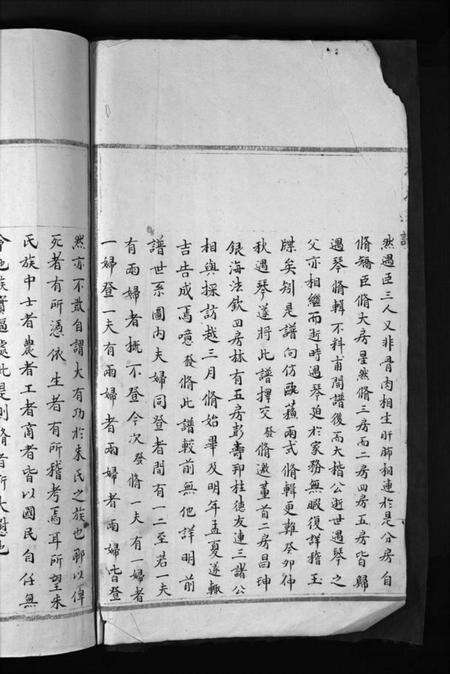 然遇臣三人又非骨肉相生肝肺相連於是分房自
脩矯臣脩大房星然脩三房而二房四房五房皆歸
遇琴脩輯不料甫開譜後而大楷公逝世遇琴之
父亦相繼而逝時遇琴迫於家務無暇復詳稽玉
牒矣矧是譜向仿歐蘇兩式脩輯更難癸卯仲
秋遇琴遂將此譜擇交發脩邀董首二房昌珅
銀海法欽四房林有五房彭壽卭柱德友連三諸公
相與採訪越三月脩始畢及明年孟夏遂輙
吉告成焉噫發脩此譜較前無他詳明前
譜世系圖內夫婦同登者間有一二至若一夫
有兩婦者概不登今次發脩一夫有一婦者
一婦登一夫有兩婦者兩婦皆登
然亦不敢自謂大有功於朱氏之族也耶以俾
死者有所憑依生者有所稽考焉耳所望朱
氏族中士者農者工者商者皆以國民自任無